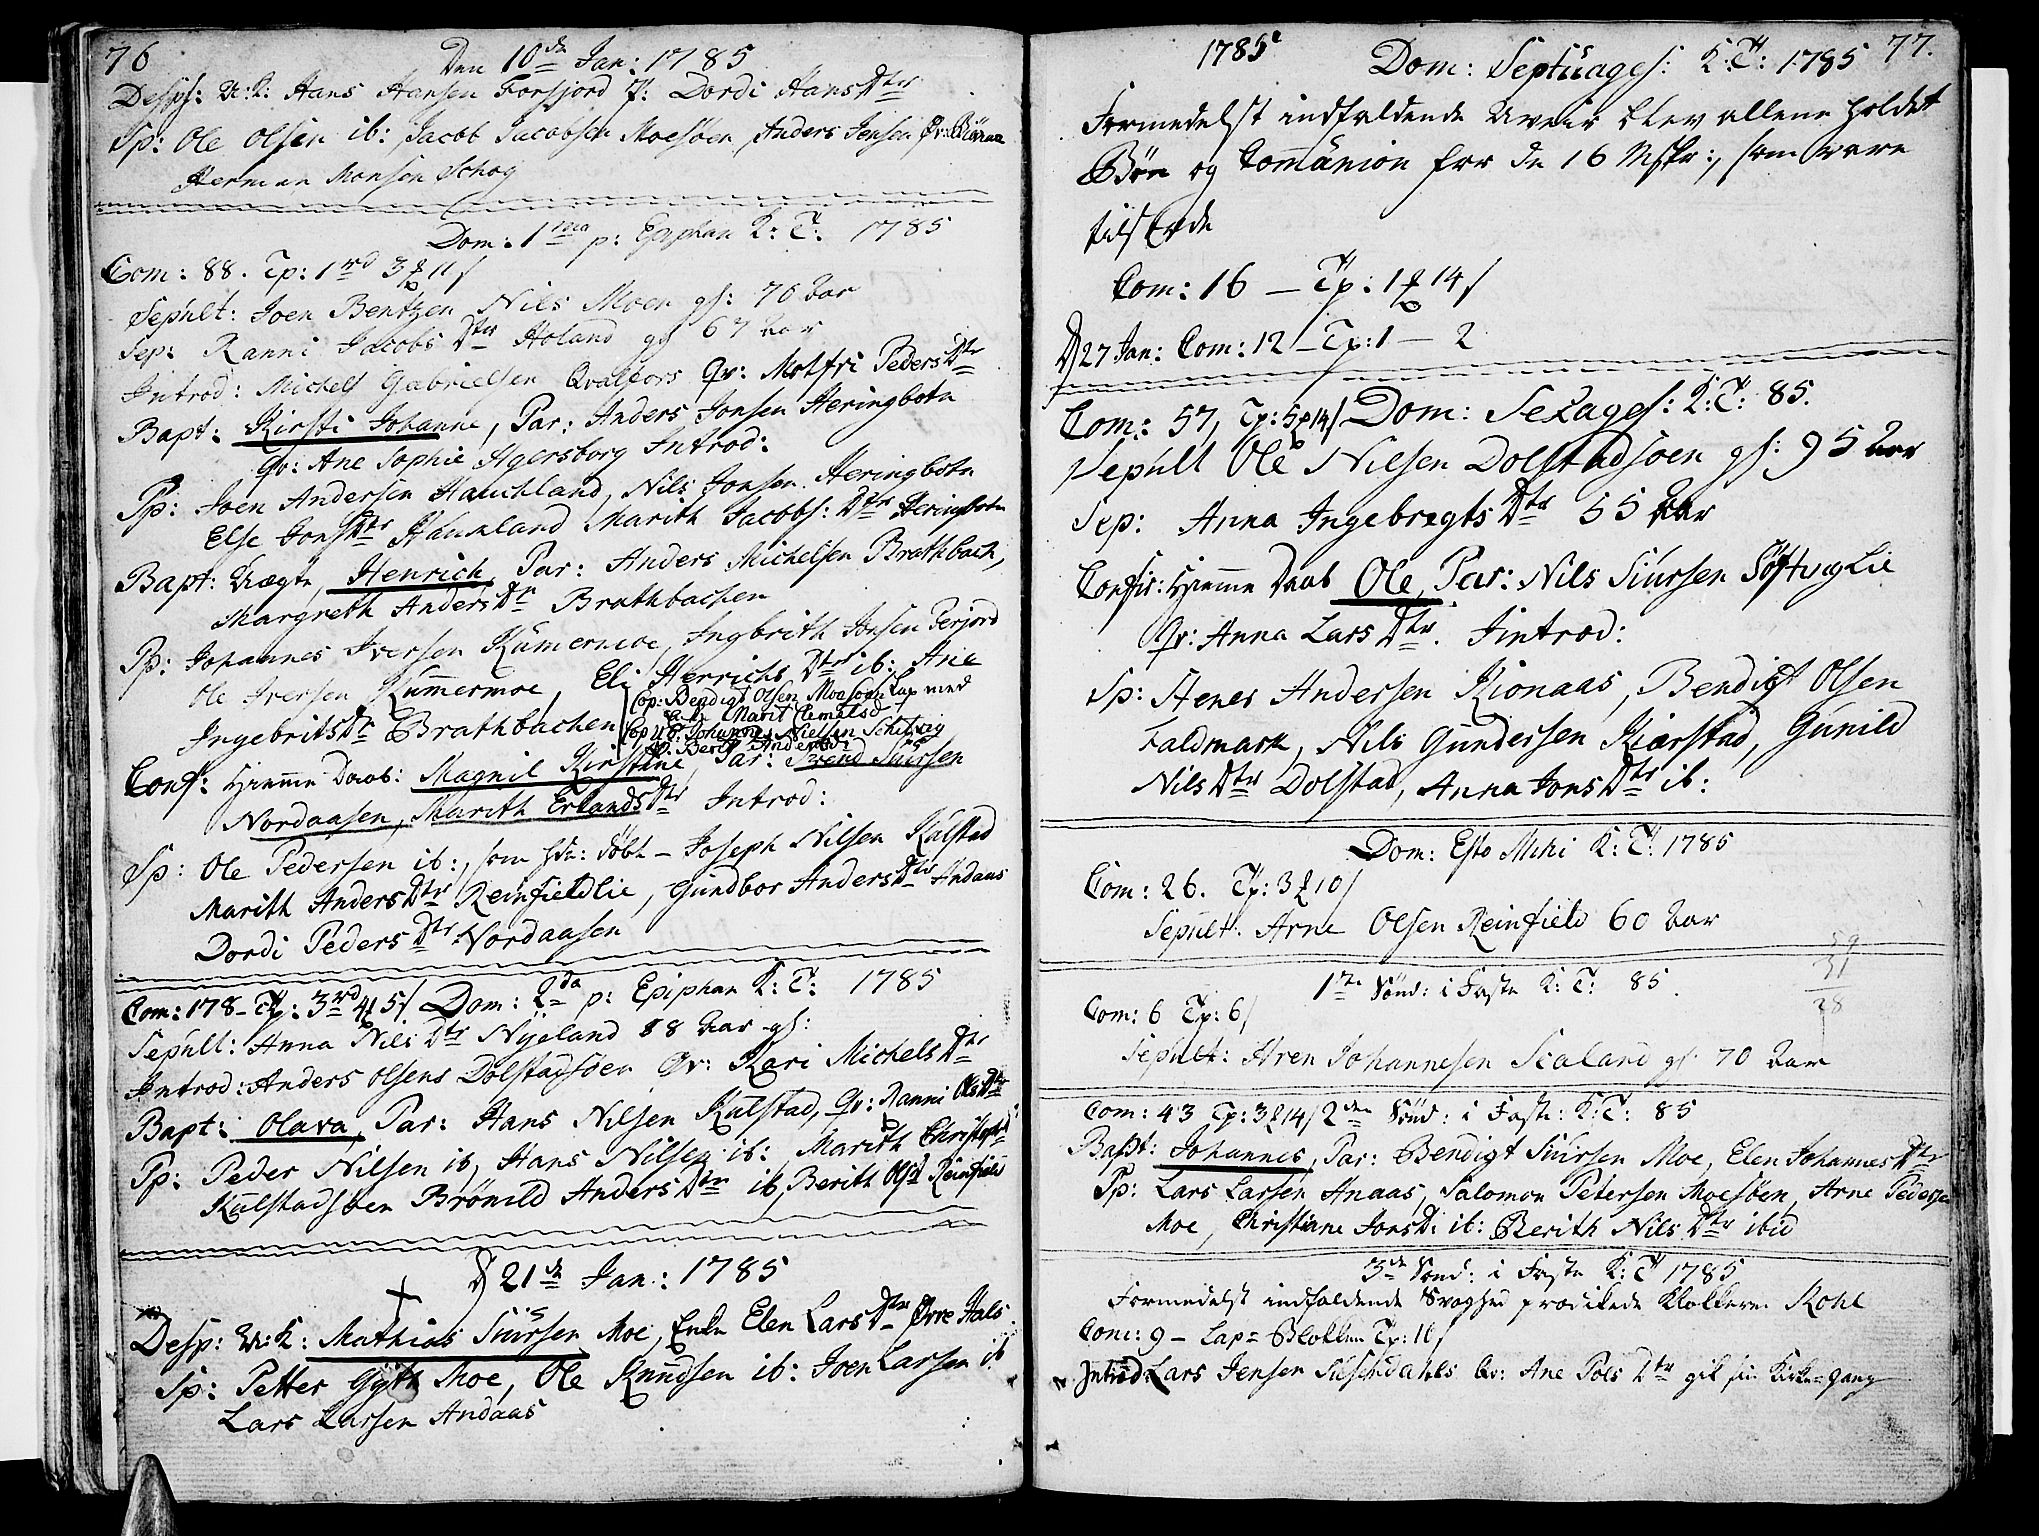 76
Den 10de Jan: 1785
Desps: U: K: Hans Hansen Forsjord P: Dordi Hans Dtr
Sp: Ole Olsen ib: Jacob Jacobsen Moesøen, Anders Jensen
Herman Monsen Schog
Dom: 1ma p: Epiphan K: T: 1785
Com: 88. Tp: 1rd 3 11s
Sepult: Joen Bentzen Nils Moen gl: 70 Aar
Sep: Ranni Jacobs Dtr Holand gl 67 Aar
Introd: Michels Gabrielsen Qvalfors Qv: Metfri Peders Dtr
Bapt: Kirsti Johanne, Par: Anders Jonsen Heringbotn
Qv: Ane Sophie Agersborg Introd:
Pp: Joen Andersen Hauchland, Nils Jonsen Heringbotn
Else Jons Dtr Hauchland Marith Jacobs: Dtr Heringbotn
Bapt: Uægte, Henrich, Par: Anders Michelsen Brathbach,
Margreth Anders Dtr Brathbachen
Pp: Johannes Iversen Kumermoe, Ingbrith Jonsen Perjord
Ole Iversen Kummermoe, Eli Henrichs Dtr ib: Ane
Ingebrits Dr Brathbachen
Cop: Bendigt Olsen Moesøen Lap med
Marit Clemetsd
Cop: Johannes Nielsen Schitvig
Berit Andersd:
Conf: Hiemme Daab: Magnil Kirstine, Par: Svend Siursen
Nordaasen, Marith Erlands Dtr Introd:
Sp: Ole Pedersen ib:, som hde: døbt - Joseph Nilsen Kulstad
Marith Anders Dtr Reinfieldlie, Gundbor Anders Dtr Andaas
Dordi Peders Dtr Nordaasen
Com: 178 - Tp: 3rd 4 5s Dom: 2da p: Epiphan K: T: 1785
Sepult: Anna Nils Dtr Nyeland 88 Aar gl:
Introd: Anders Olsens Dolstadsøen Qv: Kari Michels Dtr
Bapt: Olava, Par: Hans Nilsen Kulstad, Qv: Ranni Ols Dtr
Pp: Peder Nilsen ib, Hans Nilsen ib: Marith Christophd
Kulstadsøen Brønild Anders Dtr ib, Berith Olsd Reinfield
D 21de Jan: 1785
Desp: U: K: Mathias Siursen Moe, Enke Elen Lars Dtr Øvre Hals
Sp: Petter Gyth Moe, Ole Knudsen ib: Joen Larsen ib
Lars Larsen Andaas
1785
77.
Dom: Septuages: K: T: 1785
Formedelst indfaldende Uveir blev allene holdet
Bøn og Comunion for de 16 Mskr:, som vare
tilstede
Com: 16 - Tp: 1 14s
D 27 Jan: Com: 12 - Tp: 1 - 2
Com: 57, Tp: 5 14s Dom: Sexages: K: T: 85.
Sepult Ole Nilsen Dolstadsøen gl: 95 Aar
Sep: Anna Ingebregts Dtr 55 Aar
Confir: Hiemme Daab Ole, Par: Nils Siursen Søftviglie
Qv: Anna Lars Dtr. Introd:
Sp: Henes Andersen Kionaas, Bendigt Olsen
Faldmark, Nils Gundersen Kiærstad, Gunild
Nils Dtr Dolstad, Anna Jons Dtr ib:
Dom: Esto Mihi K: T: 1785
Com: 26. Tp: 3 10s
Sepult: Arne Olsen Reinfield 60 Aar
59
31
28
1te Sønd: i Faste K: T: 85.
Com: 6 Tp: 6s
Sepult: Aren Johannesen Scaland gl: 70 Aar
Com: 43 Tp: 3 14s 2den Sønd: i Faste: K: T: 85
Bapt: Johannes, Par: Bendigt Siursen Moe, Elen Johannes Dtr
Pp: Lars Larsen Anaas, Salomon Petersen Moesøen, Arne Pedersen
Moe, Christiane Jons D ib: Berith Nils Dtr ibid
3de Sønd: i Faste K: T 1785
Formedelst indfaldende Svaghed prædikede Klokkeren Rohl
Com: 9 - Lap= Tp: 11s
Introd: Lars Jensen Qv: Ane Pols Dtr gik sin Kirke=gang